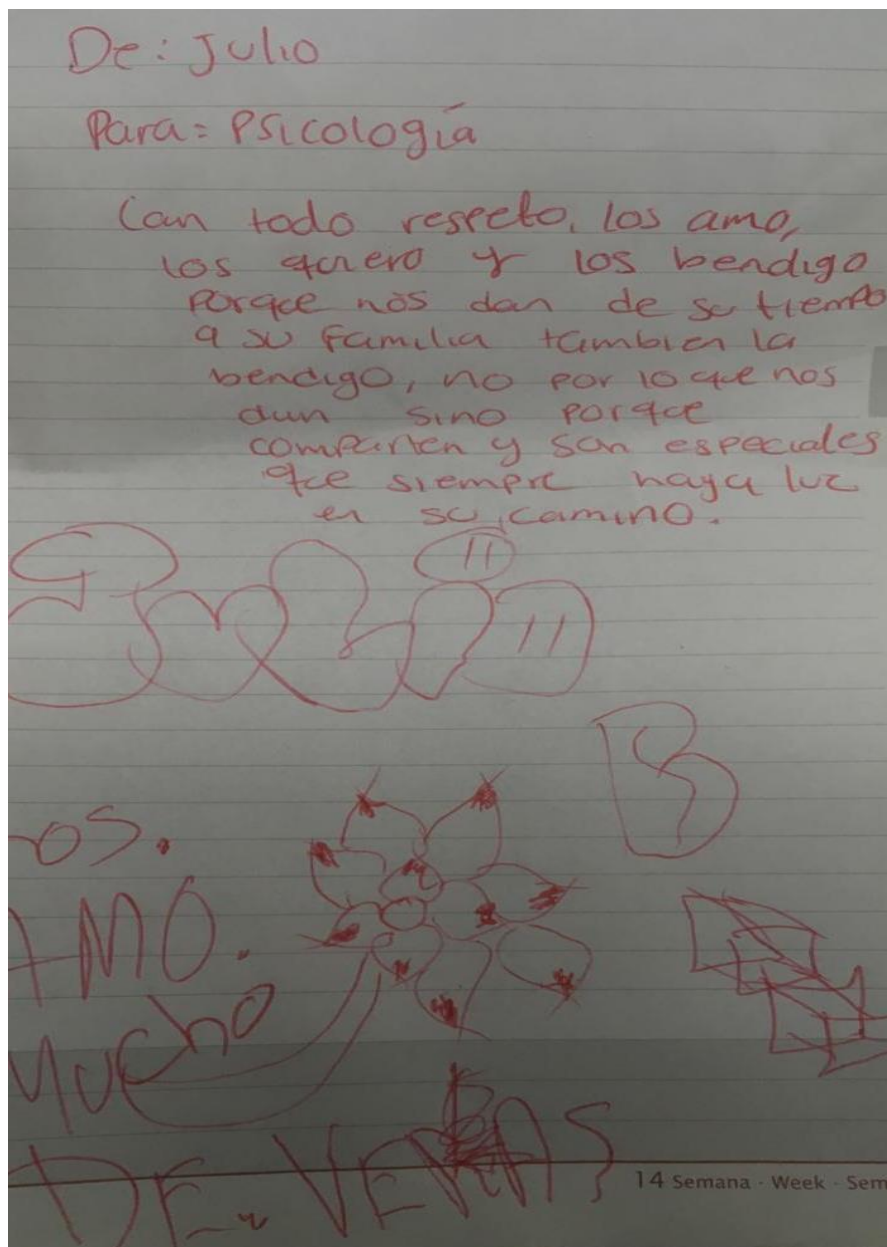 De: Julio
Para= Psicología
Con todo respeto, los amo,
los quiero y los bendigo
porque nos dan de su tiempo
a su familia tambien la
bendigo, no por lo que nos
dan sino porque
comparten y son especiales
que siempre haya luz
en su camino.
B
os.
AMO.
Mucho
DE VERAS
14 Semana · Week · Sem